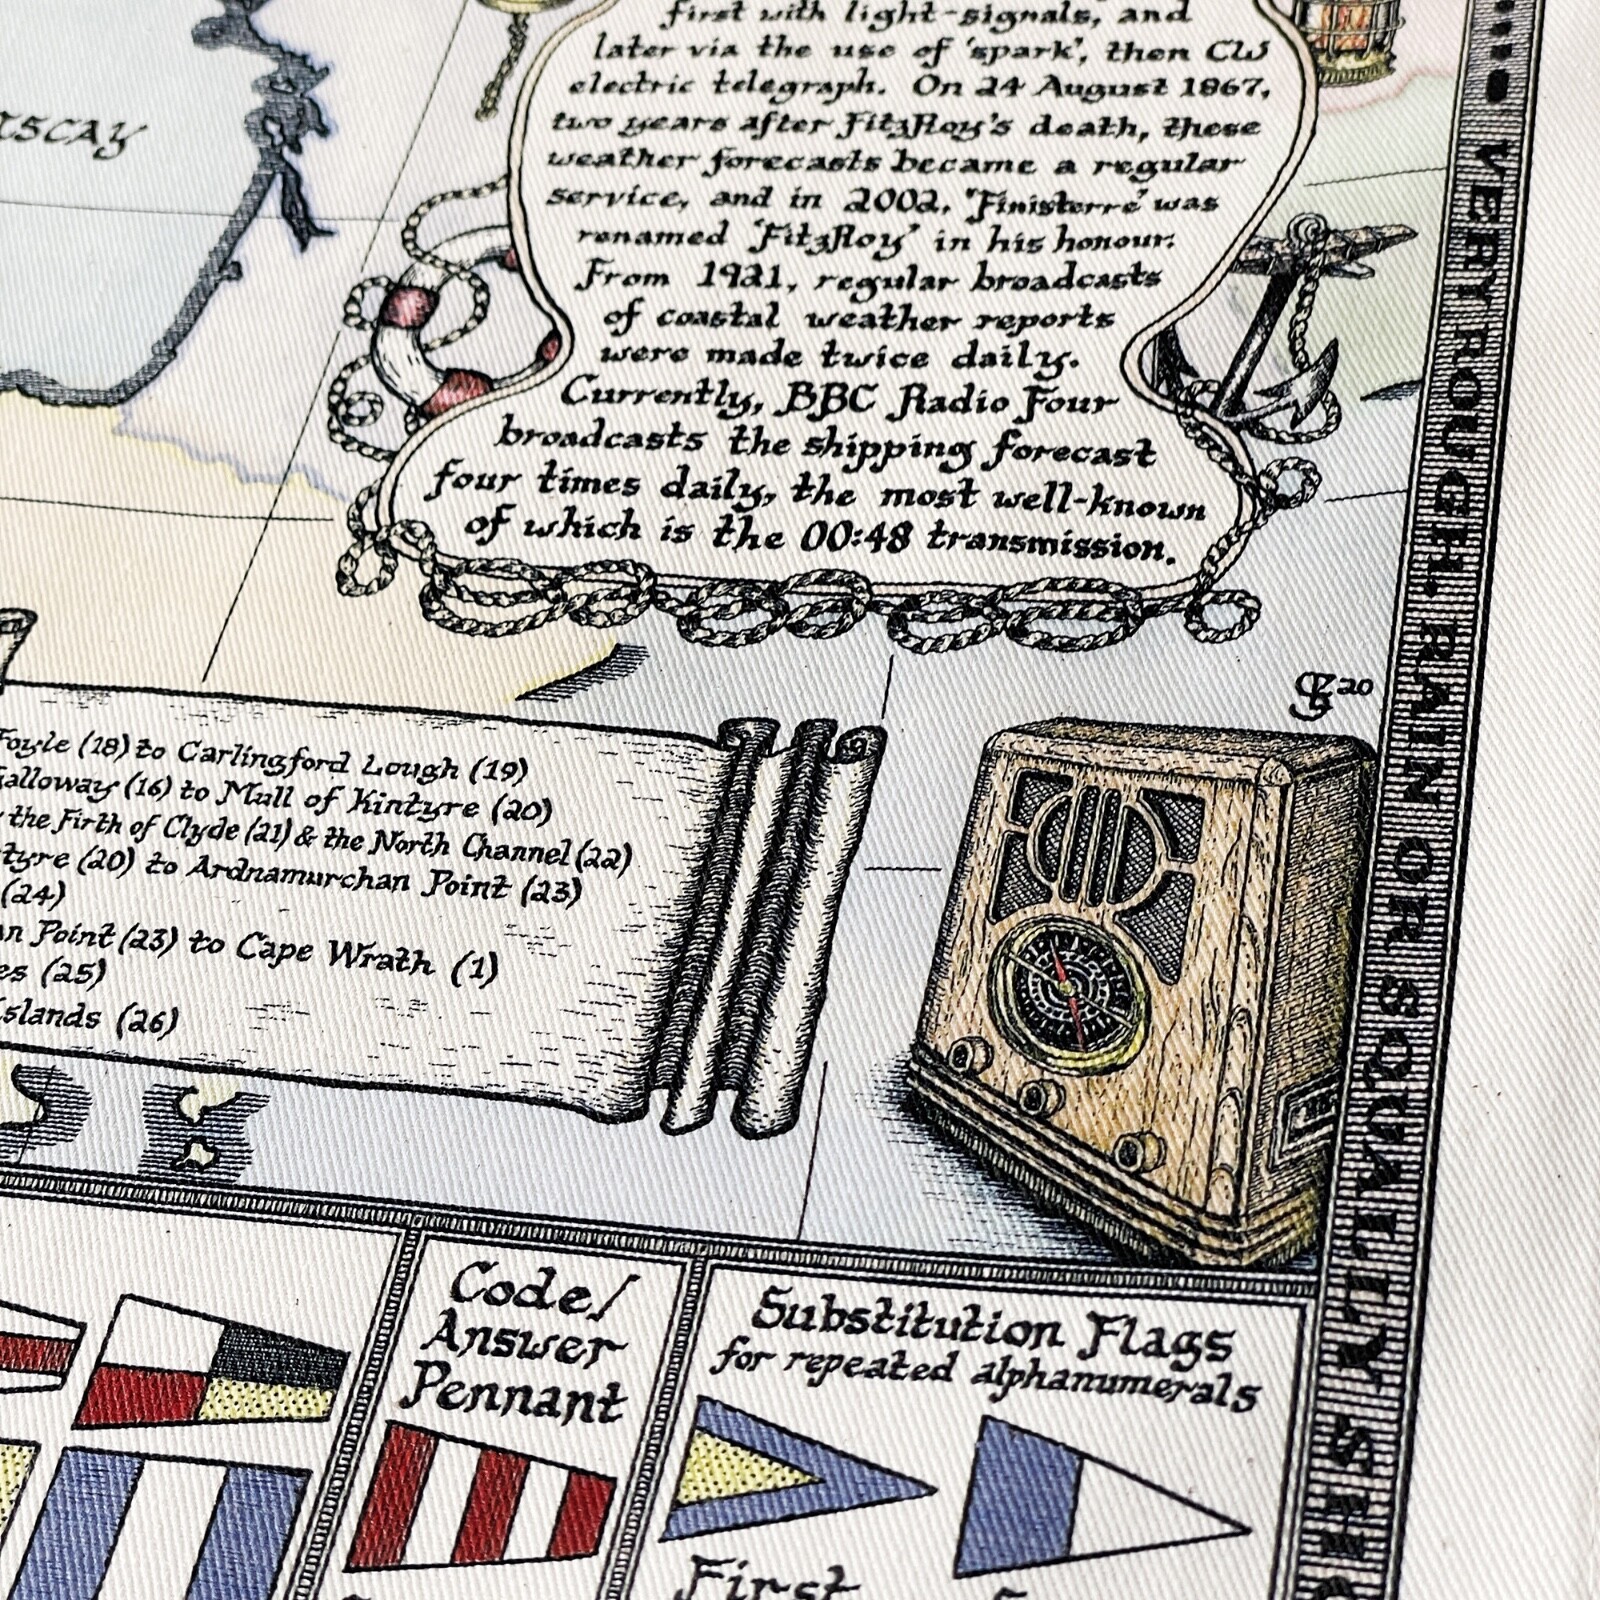 first with light-signals, and
later via the use of 'spark', then CW
electric telegraph. On 24 August 1867,
two years after FitzRoy's death, these
weather forecasts became a regular
service, and in 2002, 'Finisterre' was
renamed 'FitzRoy' in his honour.
From 1921, regular broadcasts
of coastal weather reports
were made twice daily.
Currently, BBC Radio Four
broadcasts the shipping forecast
four times daily, the most well-known
of which is the 00:48 transmission.
ISCAY
Foyle (18) to Carlingford Lough (19)
Galloway (16) to Mull of Kintyre (20)
the Firth of Clyde (21) & the North Channel (22)
tyre (20) to Ardnamurchan Point (23)
(24)
an Point (23) to Cape Wrath (1)
es (25)
Islands (26)
20
VERY ROUGH. RAIN OR SQUALLY SH
Code/
Answer
Pennant
Substitution Flags
for repeated alphanumerals
First